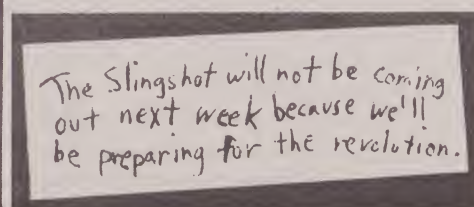 The Slingshot will not be coming
out next week because we'll
be preparing for the revolution.